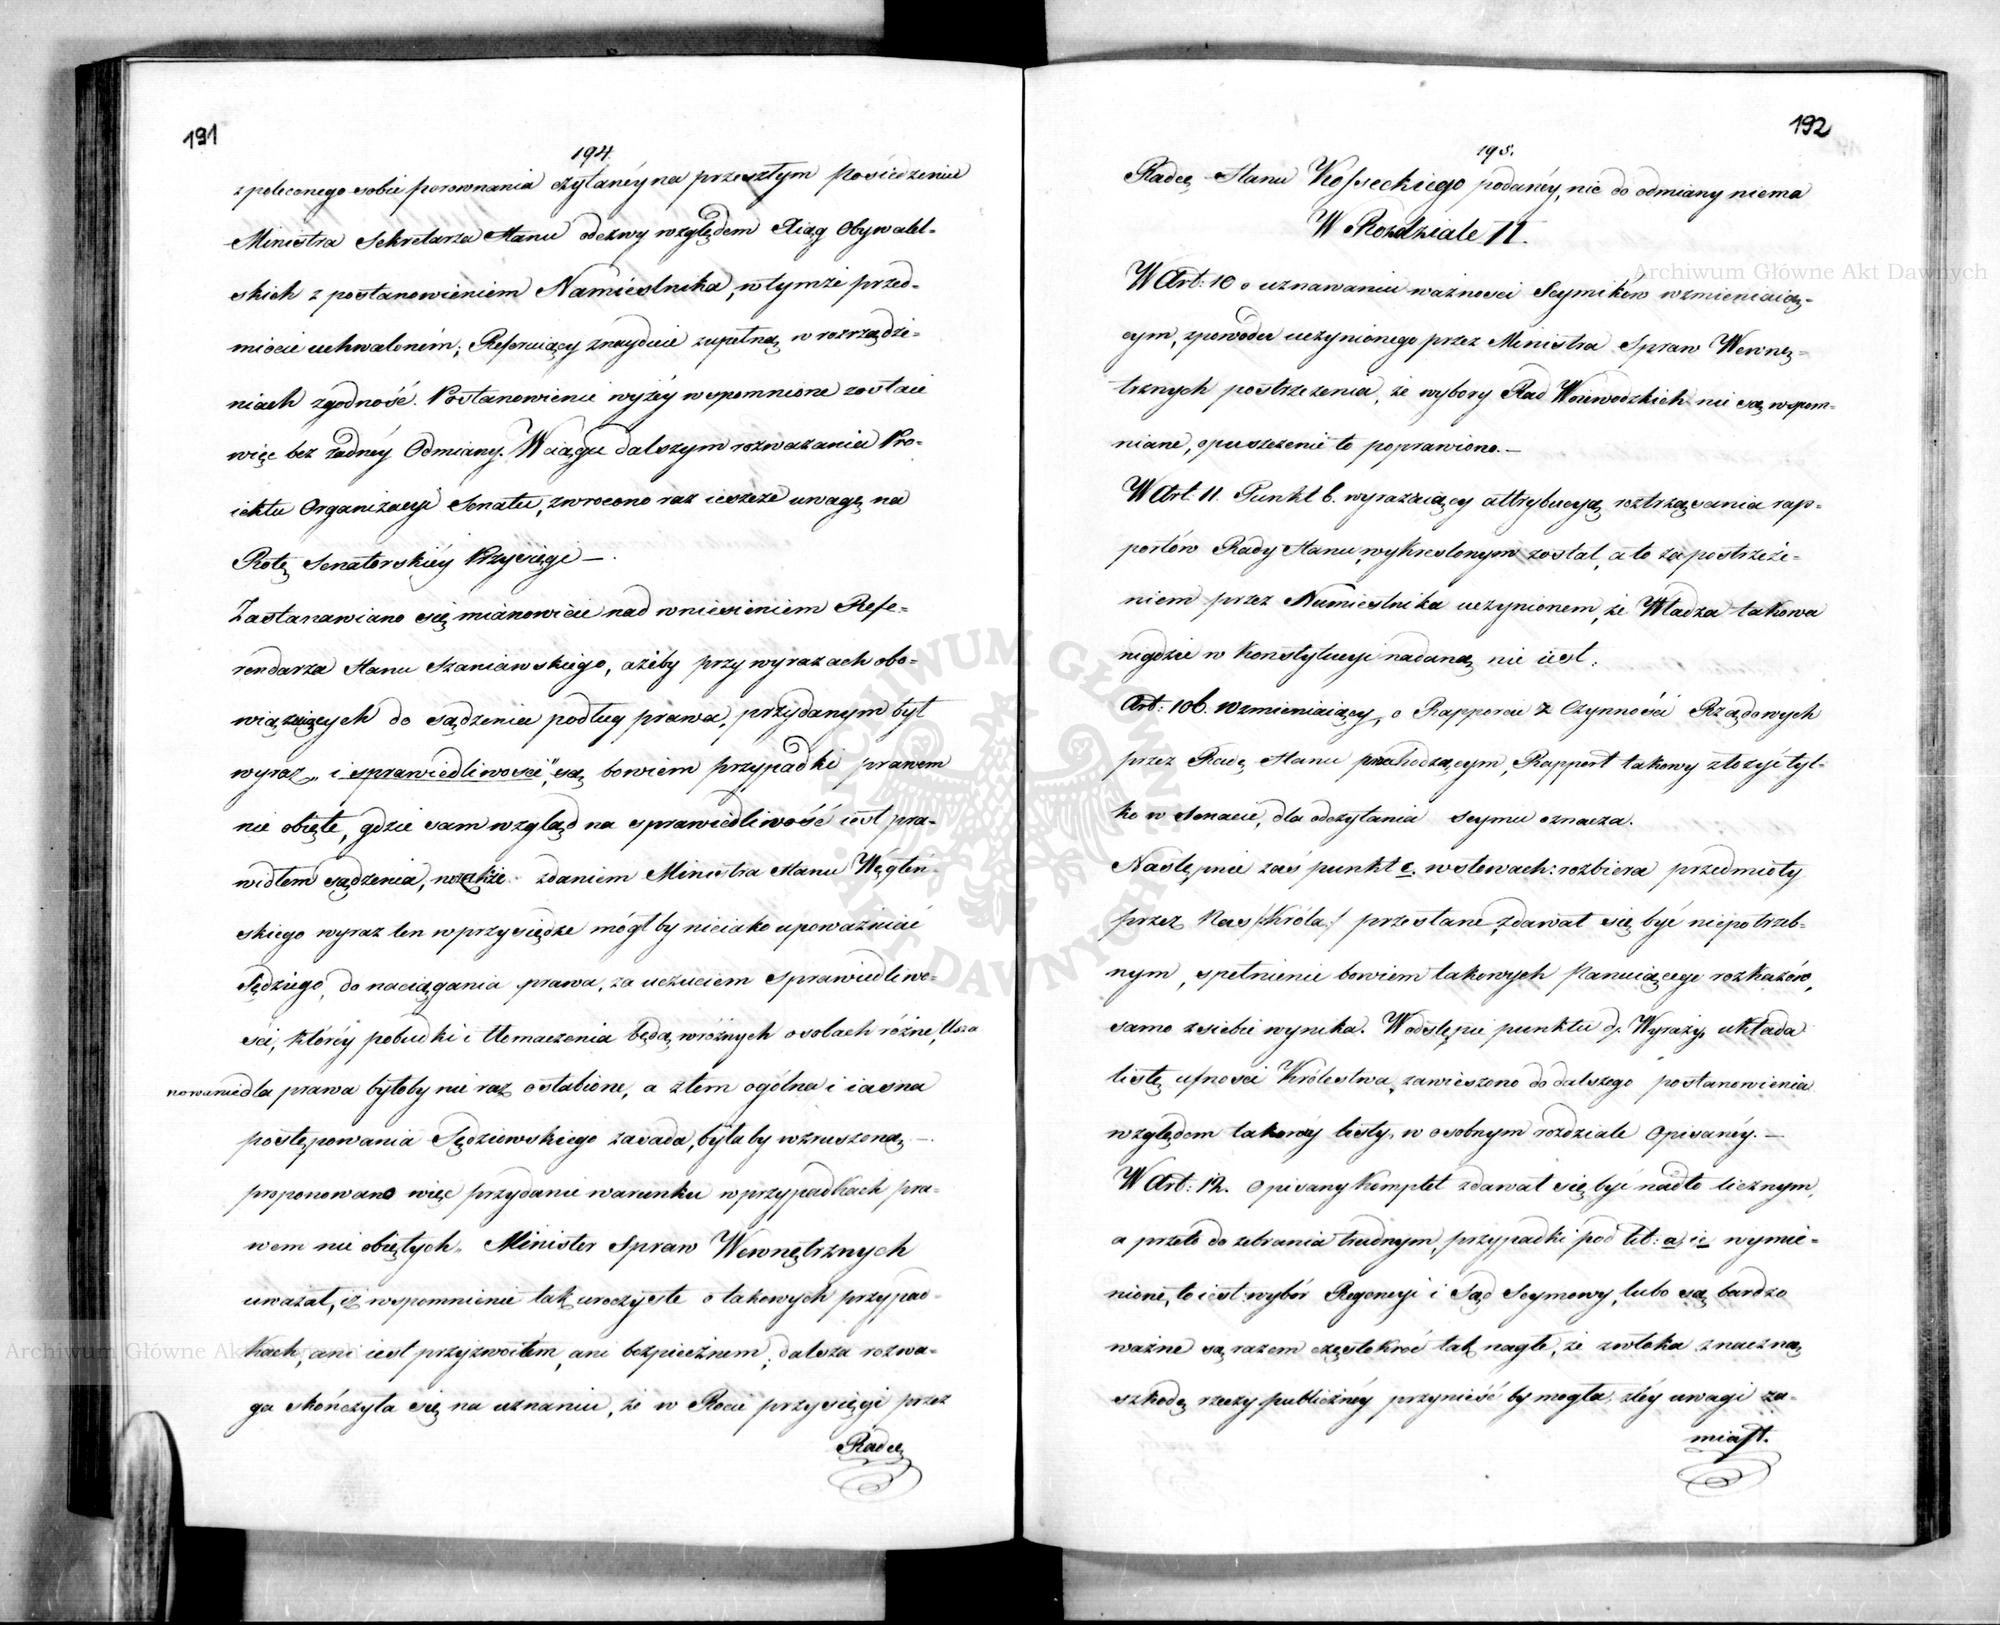 191
194.
z poleconego sobie porownania czytanéy na przeszłym Posiedzeniu
Ministra Sekretarza Stanu odezwy względem Xiąg Obywatel-
skich z postanowieniem Namiestnika, w tymże przed-
miocie uchwaloném; Referuiący znayduie zupełną w rozrządze-
niach zgodność. Postanowienie wyżéy wspomnione zostaie
więc bez żadnéy Odmiany. W ciągu dalszym rozważania Pro-
iektu Organizacyi Senatu, zwrocono raz ieszcze uwagę na
Rotę Senatorskiéy Przysięgi —.
Zastanawiano się mianowicie nad wniesieniem Refe-
rendarza Stanu Szaniawskiego, ażeby przy wyrazach obo-
wiązuiących do sądzenia podług prawa, przydanym był
wyraz „i sprawiedliwości", są bowiem przypadki prawem
nie obięte, gdzie sam wzgląd na sprawiedliwość iest pra-
widłem sądzenia, wszakże zdaniem Ministra Stanu Węgleń-
skiego wyraz ten w przysiędze mógłby nieiako upoważniać
Sędziego, do naciągania prawa, za uczuciem Sprawiedliwo-
ści, któréy pobudki i tłomaczenia będą w różnych osobach różne, Usza
nowanie dla prawa byłoby nie raz osłabione, a ztem ogólna i iasna
postępowania Sędziowskiego zasada, byłaby wzruszoną —.
proponowano więc przydanie warunku w przypadkach pra-
wem nie obiętych. Minister Spraw Wewnętrznych
uważał, iż wspomnienie tak uroczyste o takowych przypad-
kach, ani iest przyzwoitem, ani bezpiecznem; dalsza rozwa-
ga skończyła się na uznaniu, że w Rocie przysięgi przez
Radcę
192
195.
Radcę Stanu Kosseckiego podanéy, nic do odmiany niema
W Rozdziale II.
W Art: 10 o uznawaniu ważności Seymików wzmieniaią-
cym, z powodu uczynionego przez Ministra Spraw Wewnę-
trznych postrzeżenia, że wybory Rad Woiewodzkich nie są wspom-
niane, opuszczenie to poprawiono.—
W Art: 11. Punkt b. wyrażaiący attrybucyą roztrząsania rap-
portów Rady Stanu, wykreślonym został, a to za postrzeże-
niem przez Namiestnika uczynionem, że Władza takowa
nigdzie w Konstytucyi nadaną nie iest.
Art: 106. wzmieniaiący, o Rapporcie z Czynności Rządowych
przez Radę Stanu przechodzącym, Rapport takowy złożyć tyl-
ko w Senacie, dla odczytania Seymu oznacza.
Następnie zaś punkt c. w słowach: rozbiera przedmioty
przez Nas /:Króla:/ przesłane, zdawał się być niepotrzeb-
nym, spełnienie bowiem takowych Panuiącego rozkazów,
samo z siebie wynika. W odstępie punktu d. Wyrazy, układa
listę ufności Królestwa, zawieszono do dalszego postanowienia
względem takowéy listy, w osobnym rozdziale Opisanéy.—
W Art: 12. Opisany Komplet zdawał się być nadto licznym,
a przeto do zebrania trudnym, przypadki pod lit: a, i c wymie-
nione, to iest: wybór Regencyi i Sąd Seymowy, lubo są bardzo
ważne są razem częstokroć tak nagłe, że zwłoka znaczną
szkodę rzeczy publicznéy przynieść by mogła, z téy uwagi za-
miast.